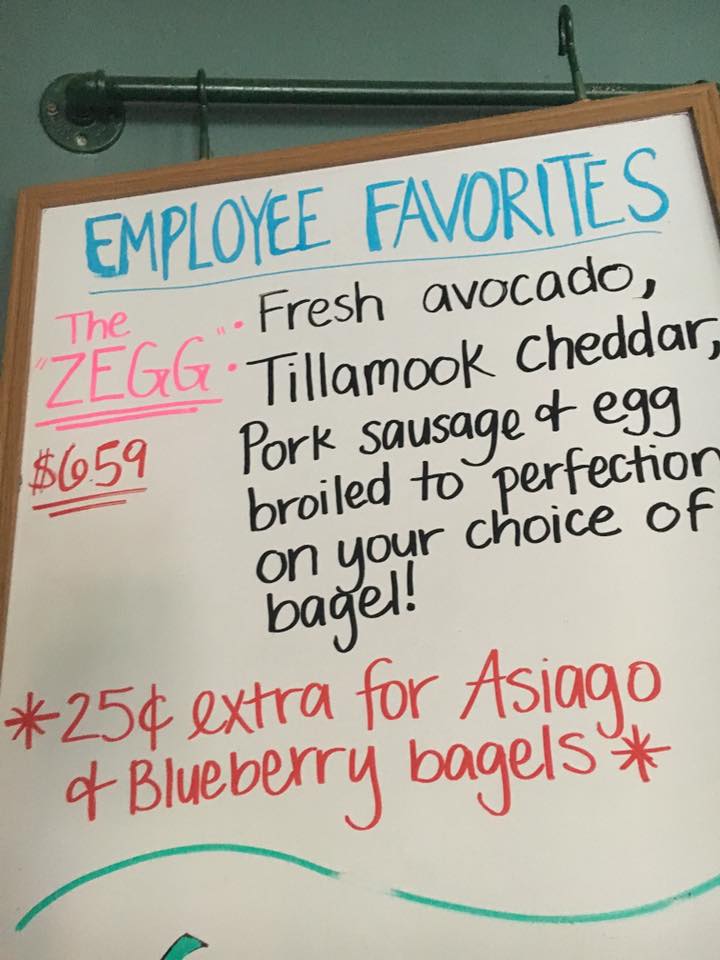 EMPLOYEE FAVORITES
The
"ZEGG"
$6.59
• Fresh avocado,
• Tillamook cheddar,
Pork sausage & egg
broiled to perfection
on your choice of
bagel!
*25¢ extra for Asiago
& Blueberry bagels*